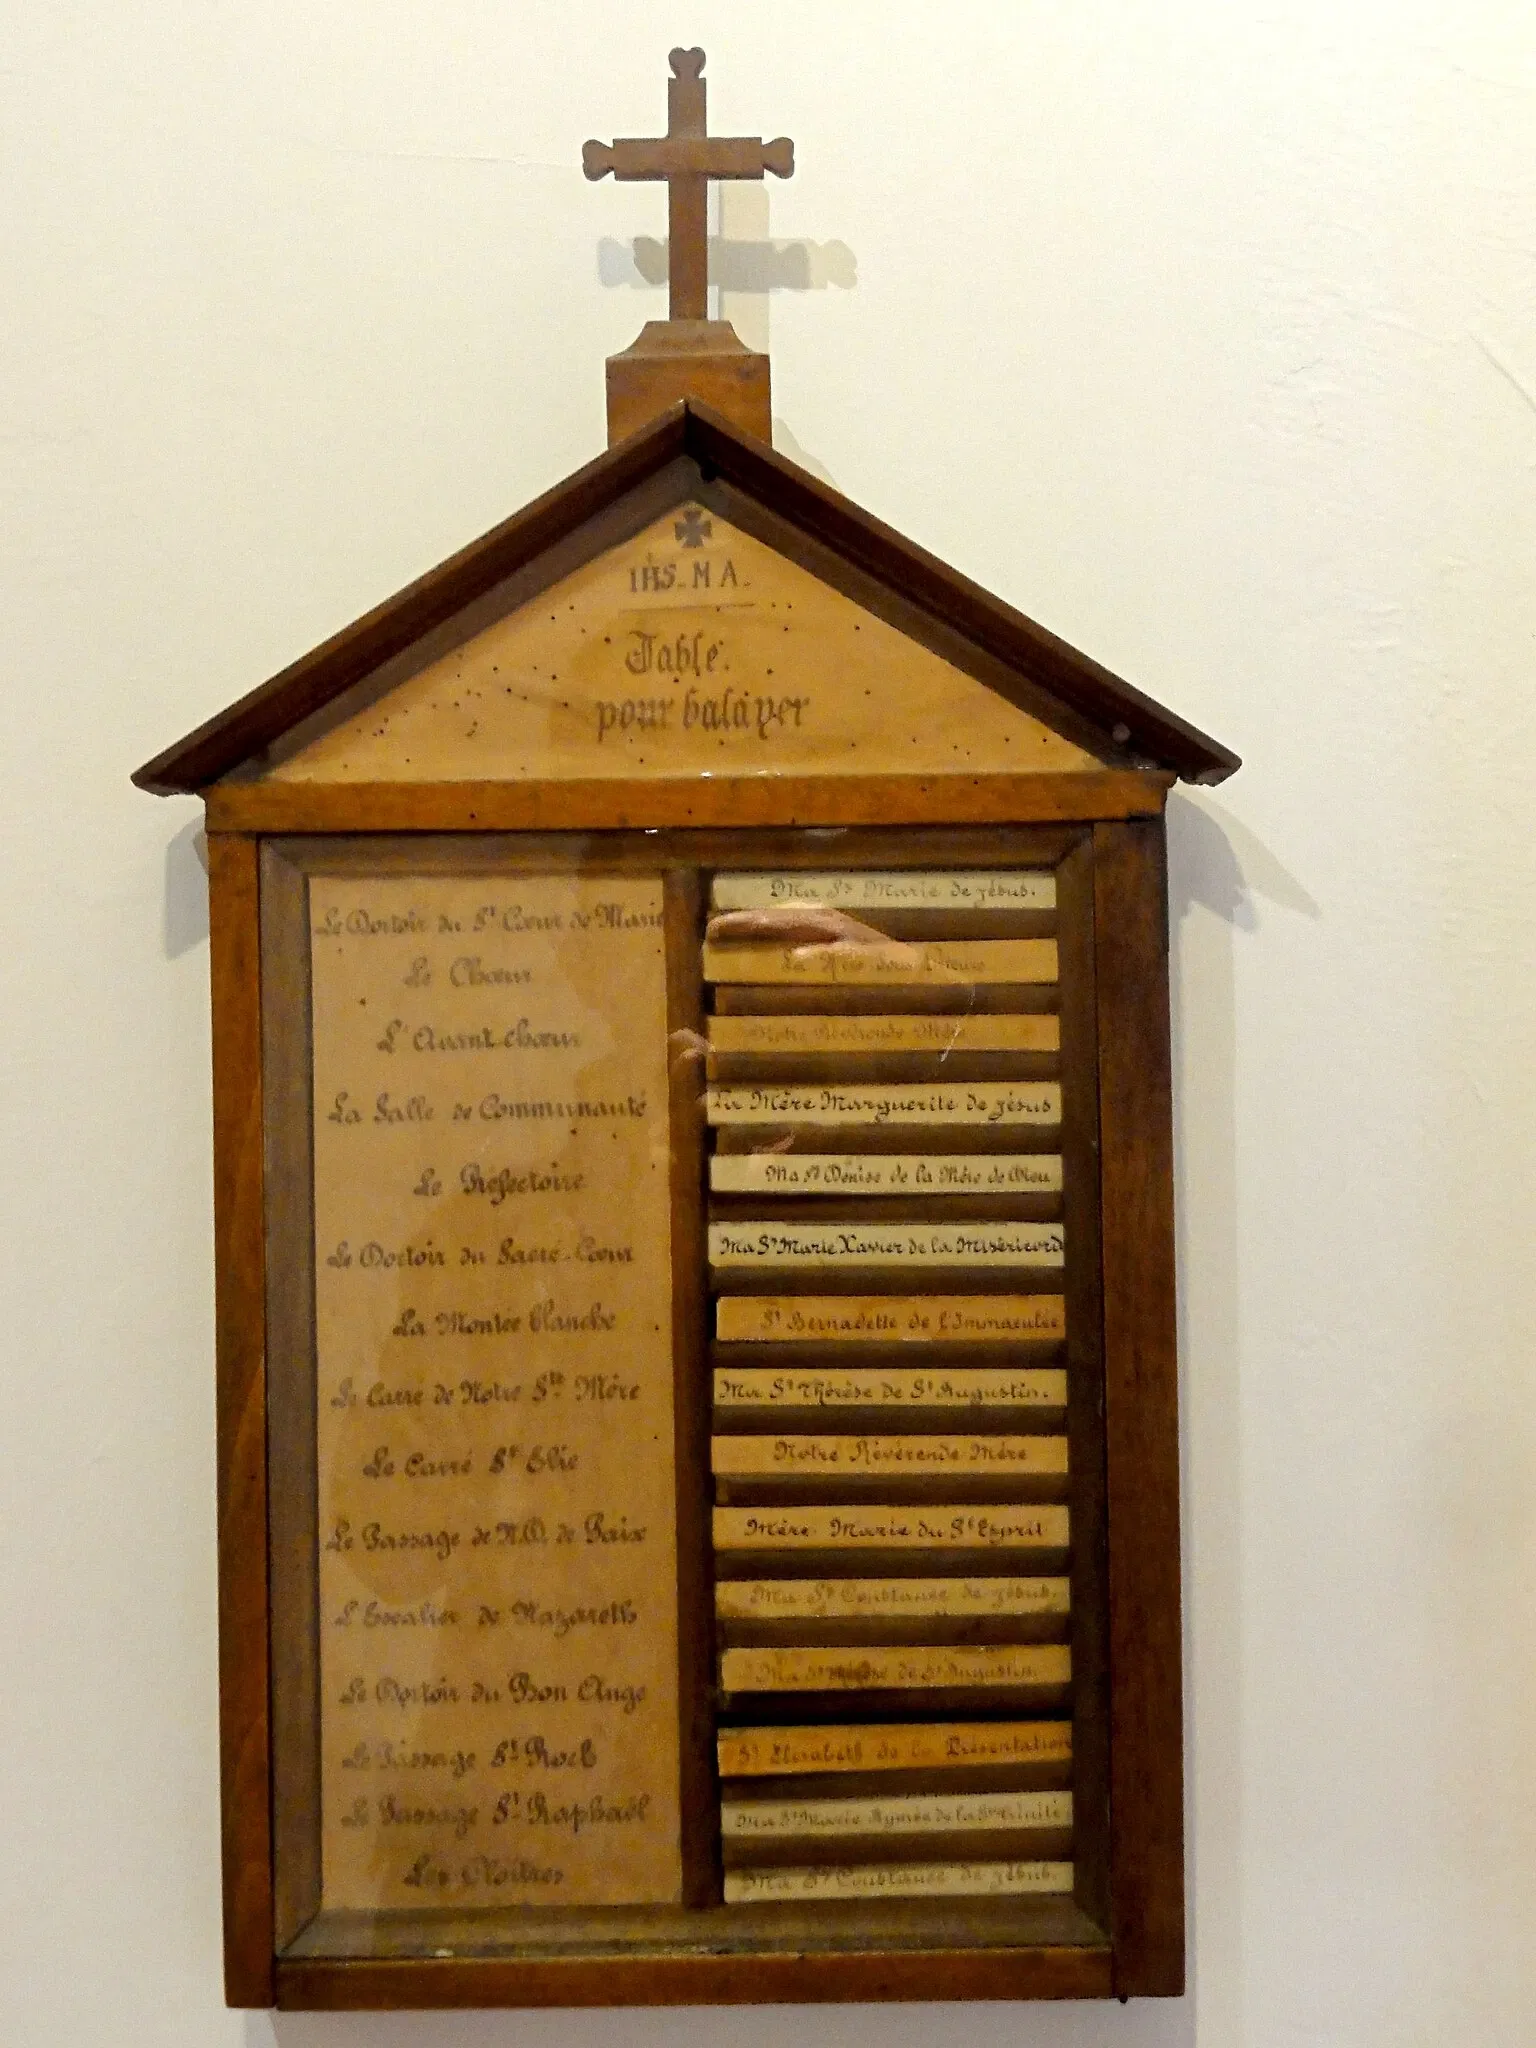 IHS - M A -
Table.
pour balayer
Le Dortoir du St Cœur de Marie
Ma Sr Marie de Jésus.
Le Chœur
La Mère Sous
L'Avant-chœur
Notre Révérende Mère
La Salle de Communauté
La Mère Marguerite de Jésus
Le Réfectoire
Ma Sr Denise de la Mère de Dieu
Le Dortoir du Sacré-Cœur
Ma Sr Marie Xavier de la Miséricorde
La Montée blanche
Sr Bernadette de l'Immaculée
Le Carré de Notre Ste Mère
Ma Sr Thérèse de St Augustin.
Le Carré St Elie
Notre Révérende Mère
Le Passage de N.D. de Paix
Mère Marie du St Esprit
L'Escalier de Nazareth
Ma Sr Constance de Jésus.
Le Dortoir du Bon Ange
Ma Sr Thérèse de St Augustin.
Le Passage St Roch
Sr Elisabeth de la Présentation
Le Passage St Raphaël
Ma Sr Marie Aymée de la Ste Trinité
Les Cloîtres
Ma Sr Constance de Jésus.